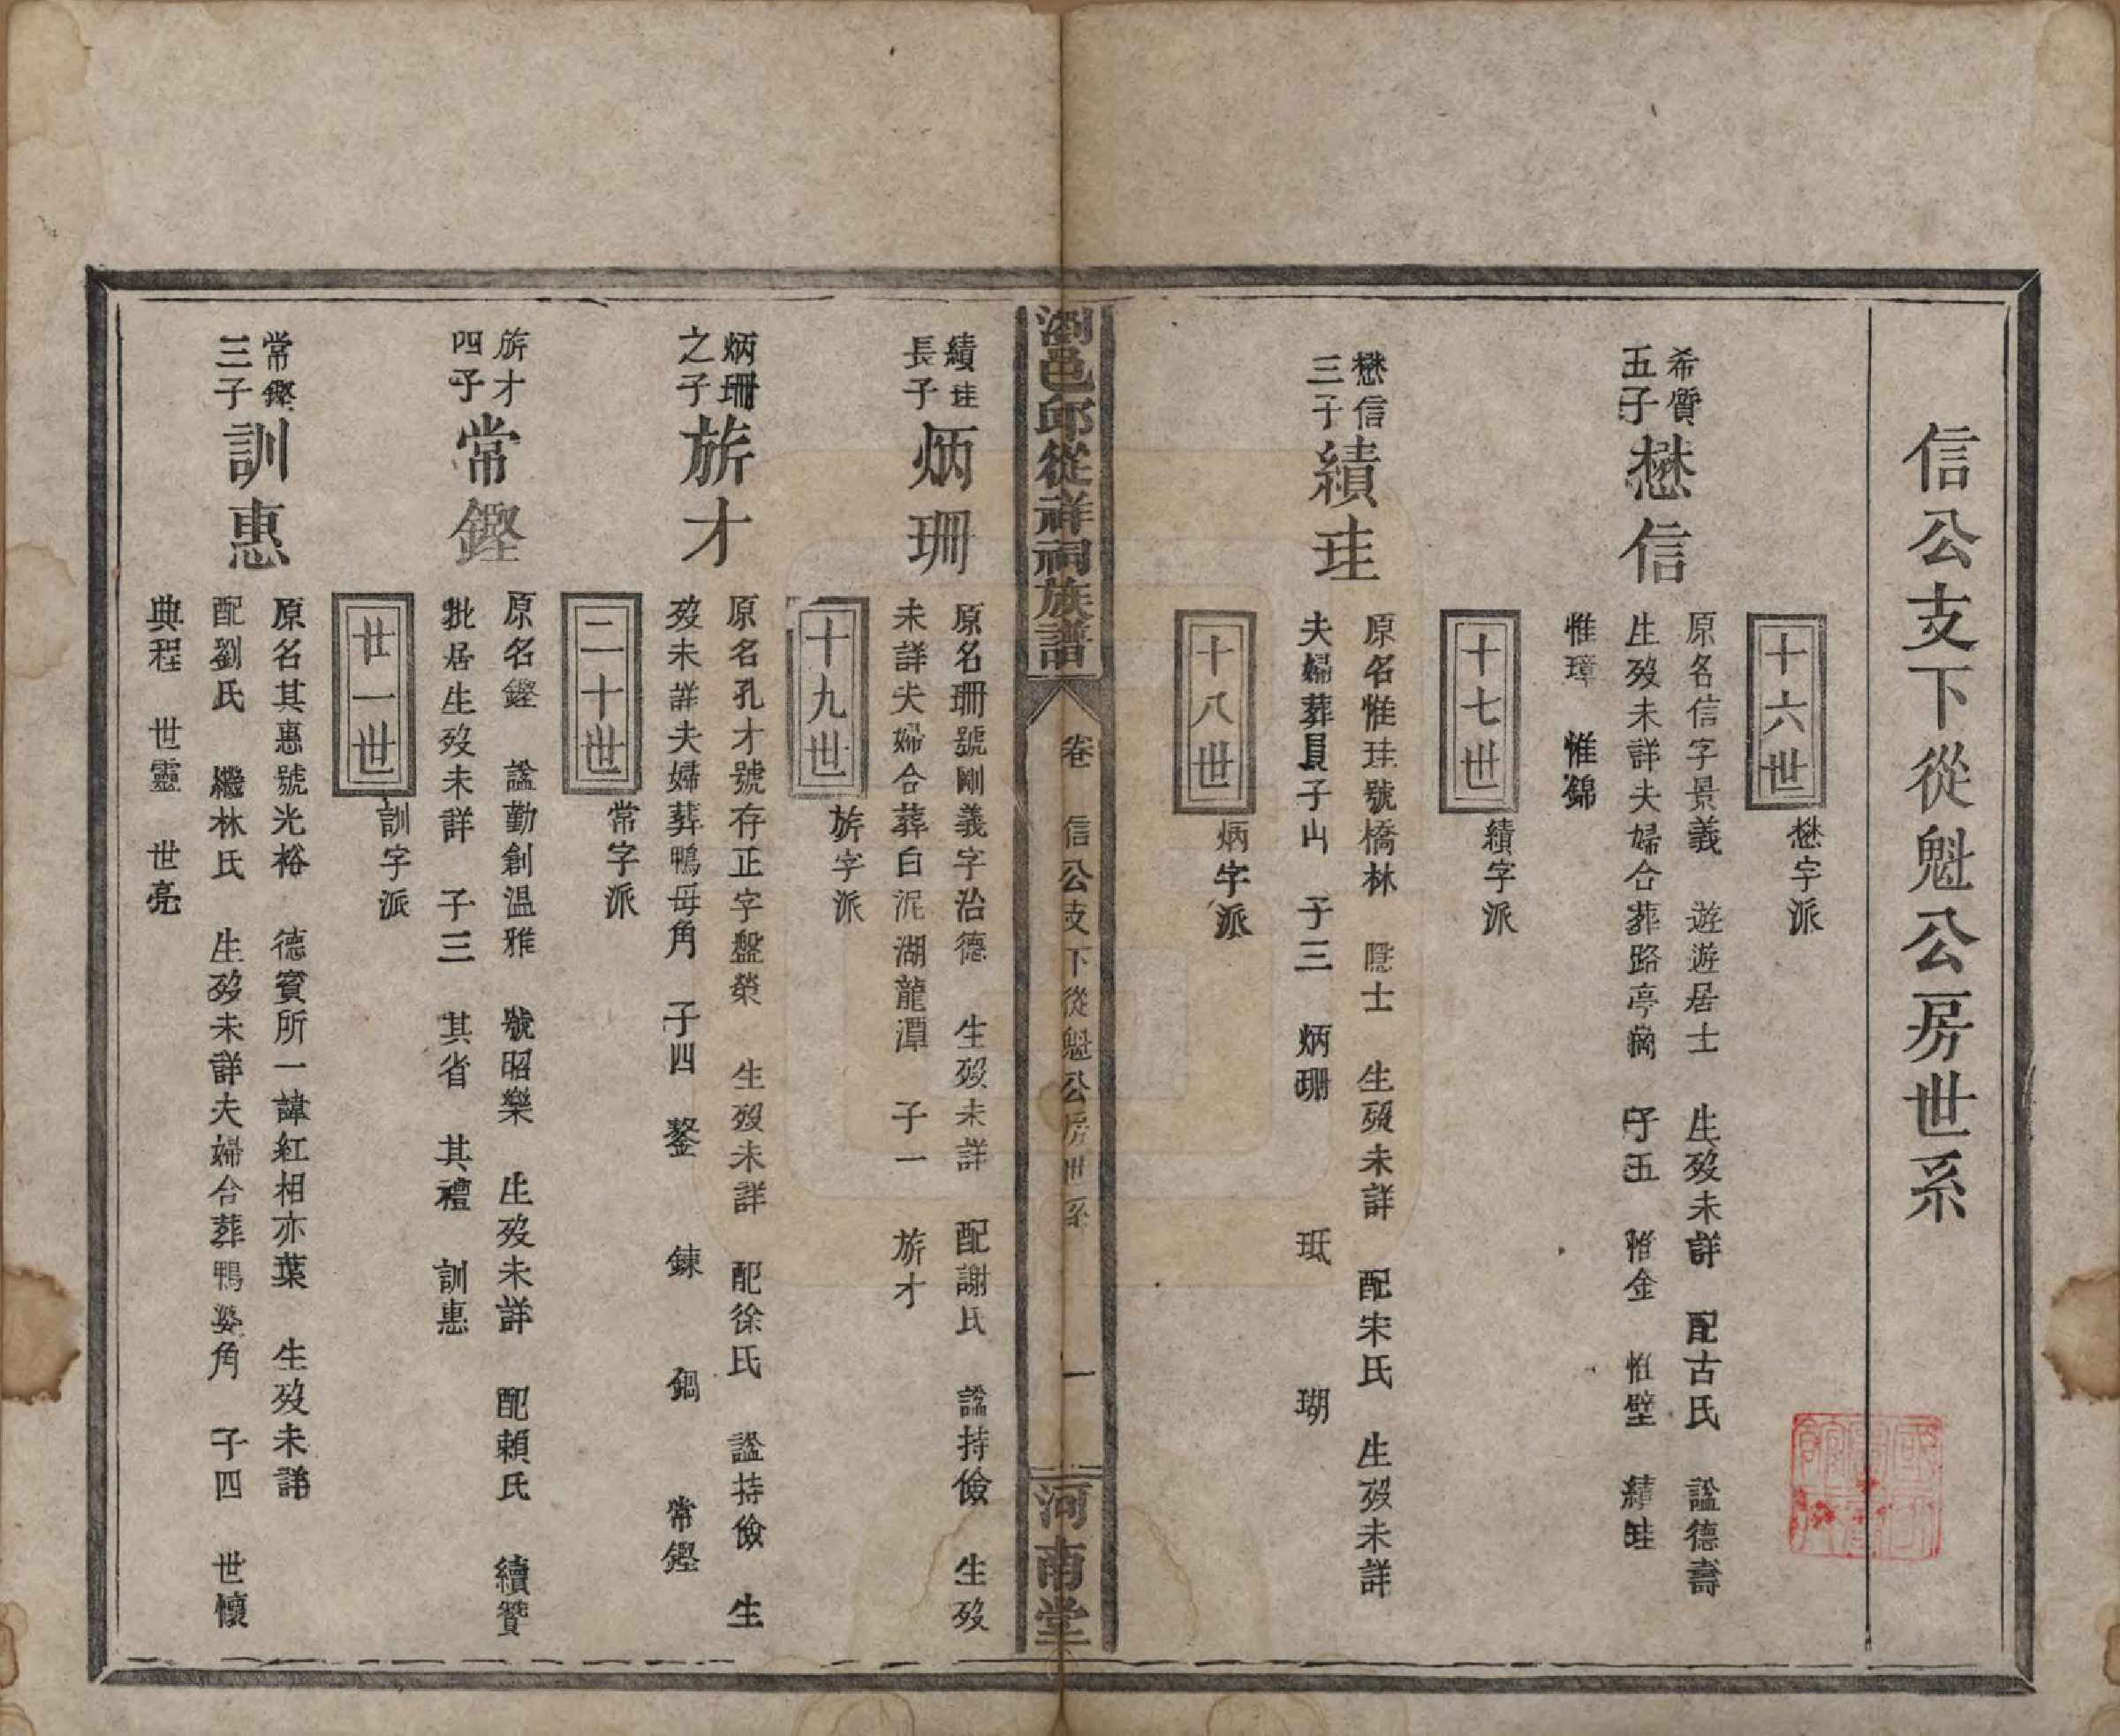 信公支下從魁公房世系
十六世
懋字派
希質
五子
懋信
原名信字景義 遊遊居士 生歿未詳 配古氏 諡德壽
生歿未詳夫婦合葬路亭崗 子五 惟金 惟壁 績珪
惟璋 惟錦
十七世
績字派
懋信
三子
績珪
原名惟珪號橋林 隱士 生歿未詳 配宋氏 生歿未詳
夫婦葬貝子山 子三 炳珊 珷 瑚
十八世
炳字派
瀏邑邱從祥祠族譜
卷 信公支下從魁公房世系 一
河南堂
績珪
長子
炳珊
原名珊號剛義字治德 生歿未詳 配謝氏 諡持儉 生歿
未詳夫婦合葬白泥湖龍潭 子一 旂才
十九世
旂字派
炳珊
之子
旂才
原名孔才號存正字盤榮 生歿未詳 配徐氏 諡持儉 生
歿未詳夫婦葬鴨毋角 子四 鋻 鍊 鍋 常鏗
二十世
常字派
旂才
四子
常鏗
原名鏗 諡勤創溫雅 號昭樂 生歿未詳 配賴氏 續贊
批居生歿未詳 子三 其省 其禮 訓惠
廿一世
訓字派
常鏗
三子
訓惠
原名其惠號光裕 德賓所一諱紅相亦葉 生歿未詳
配劉氏 繼林氏 生歿未詳夫婦合葬鴨婆角 子四 世懷
典程 世靈 世亮